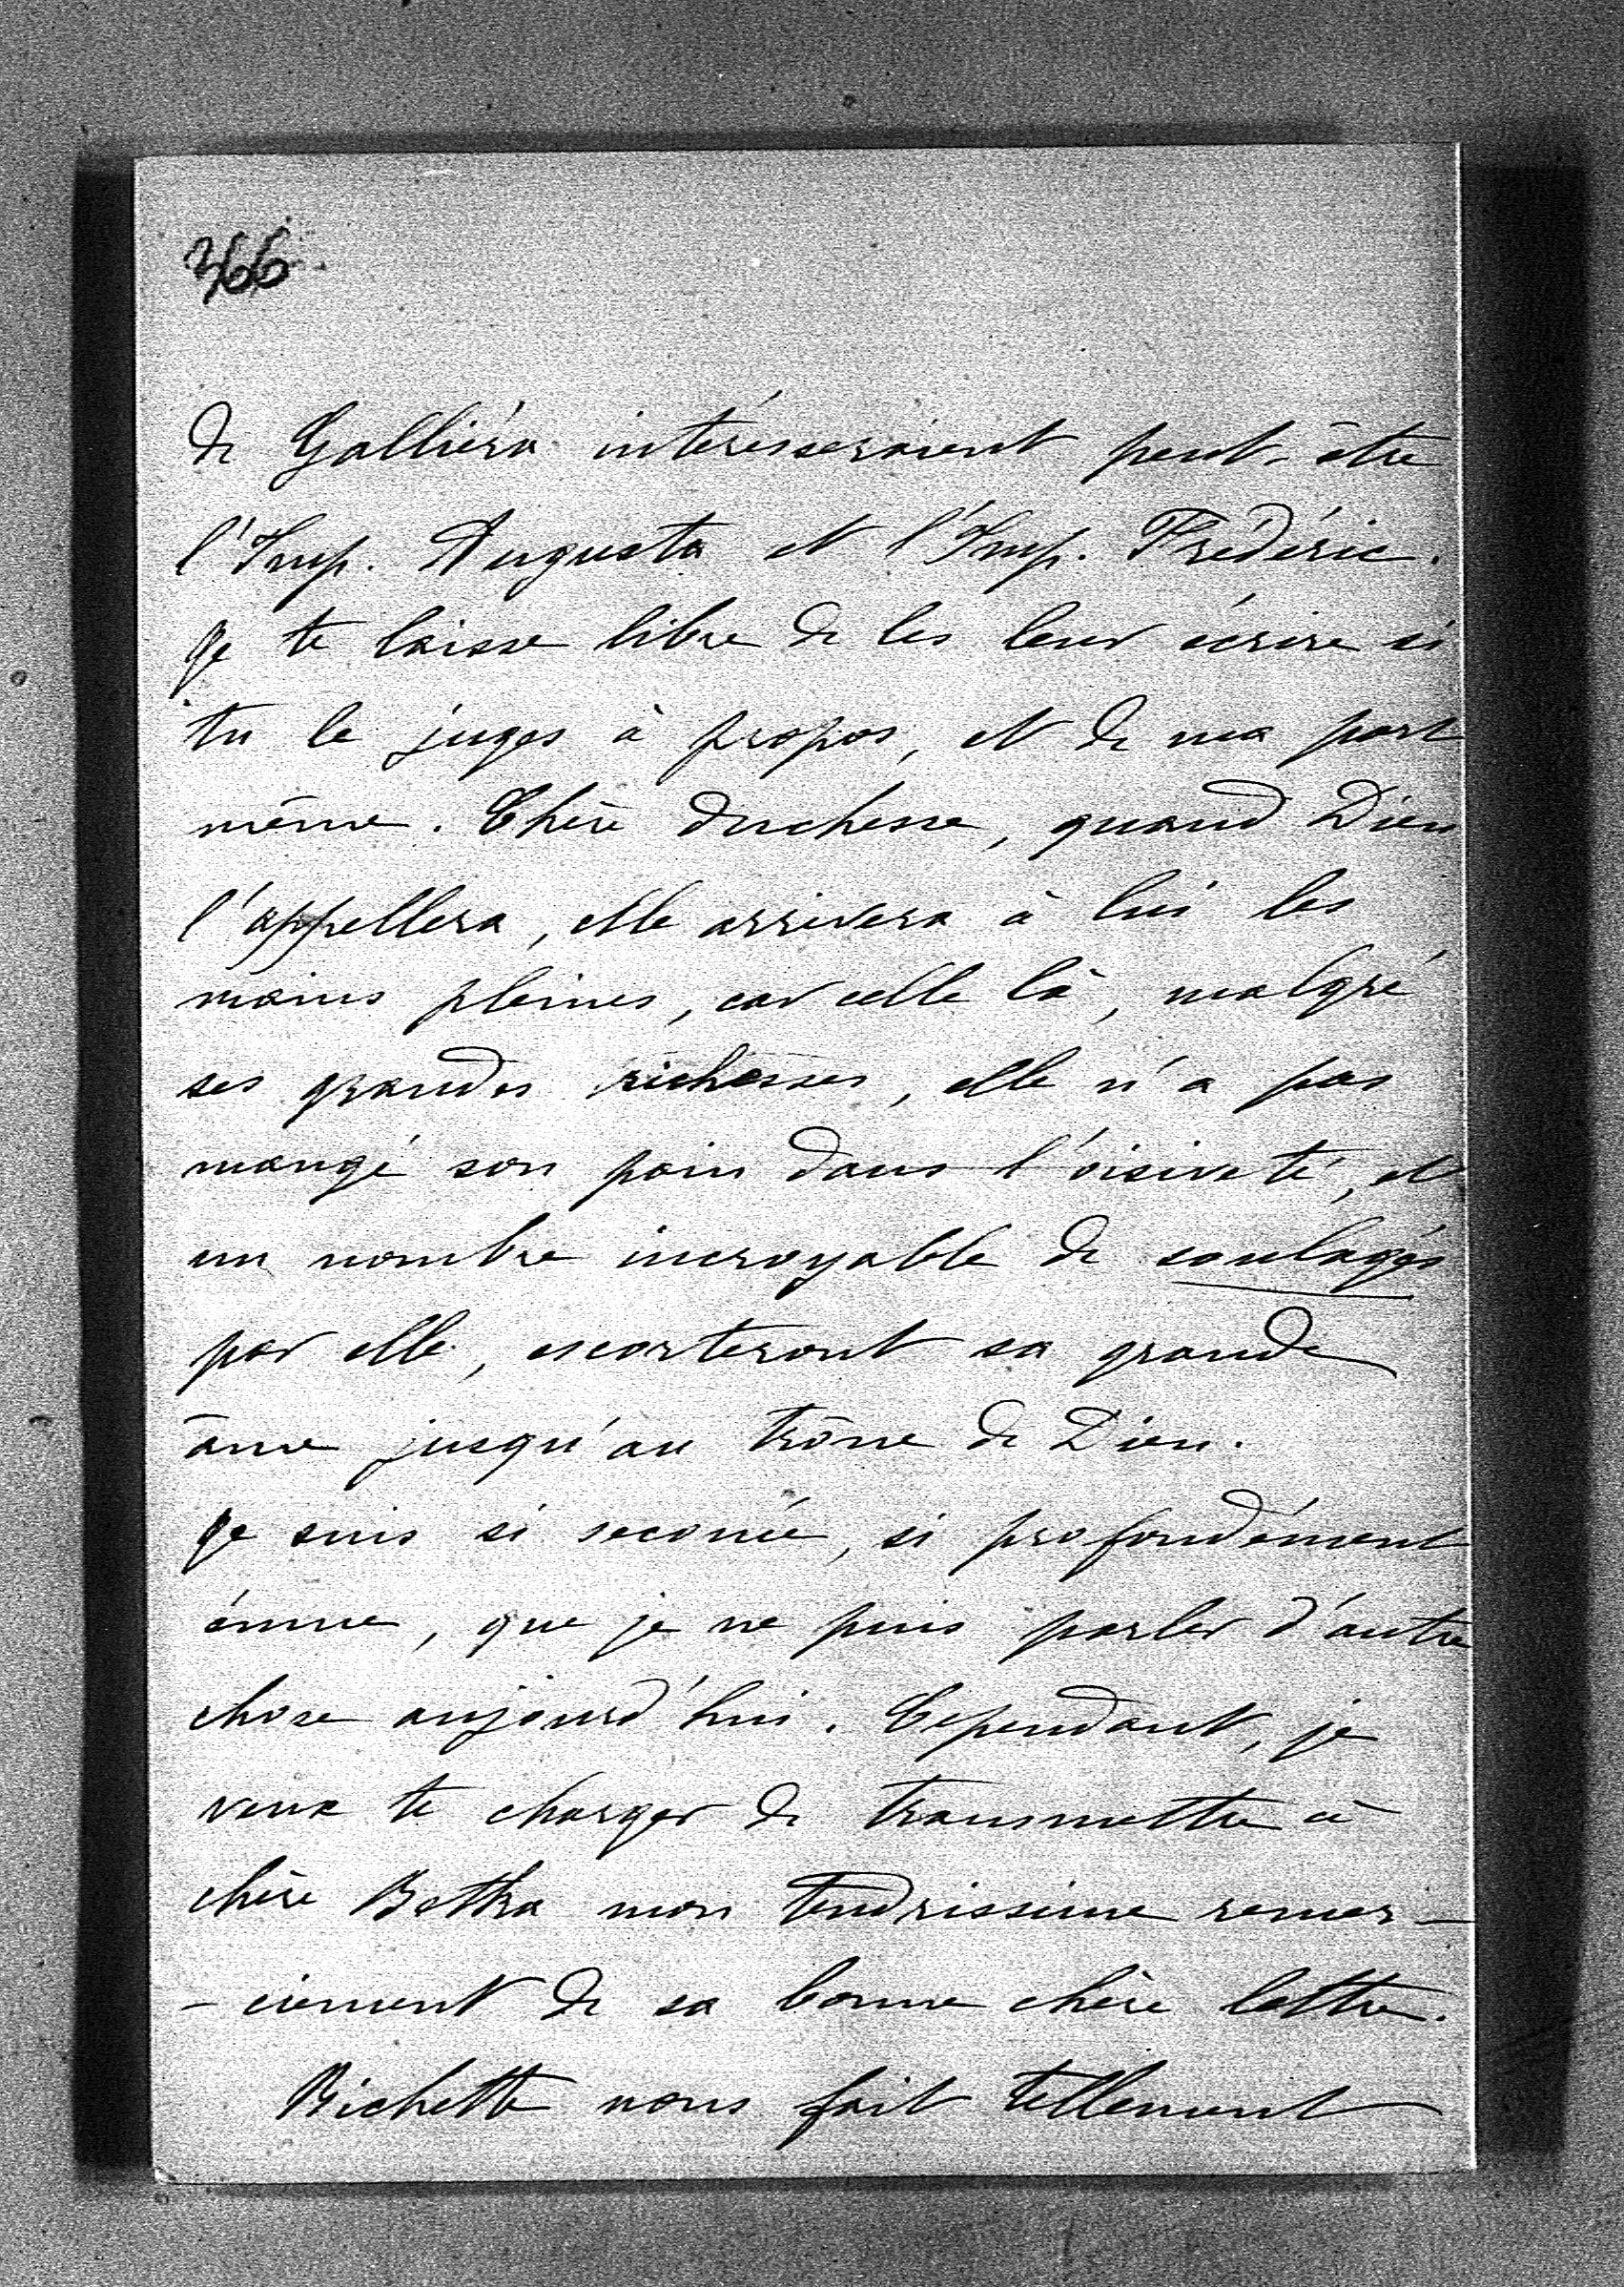 366
de Galliéra intéresseraient peut-être
l'Imp. Augusta et l'Imp. Frédéric.
Je te laisse libre de les leur écrire si
tu le juges à propos, et de ma part
même. Chère duchesse, quand Dieu
l'appellera, elle arrivera à lui les
mains pleines, car celle là, malgré
ses grandes richesses, elle n'a pas
mangé son pain dans l'oisiveté, et
un nombre incroyable de soulagés
par elle, escorteront sa grande
âme jusqu'au trône de Dieu.
Je suis si secouée, si profondément
émue, que je ne puis parler d'autre
chose aujourd'hui. Cependant, je
veux te charger de transmettre à
chère Betka mon tendrissime remer-
-ciement de sa bonne chère lettre.
Bichette nous fait tellement